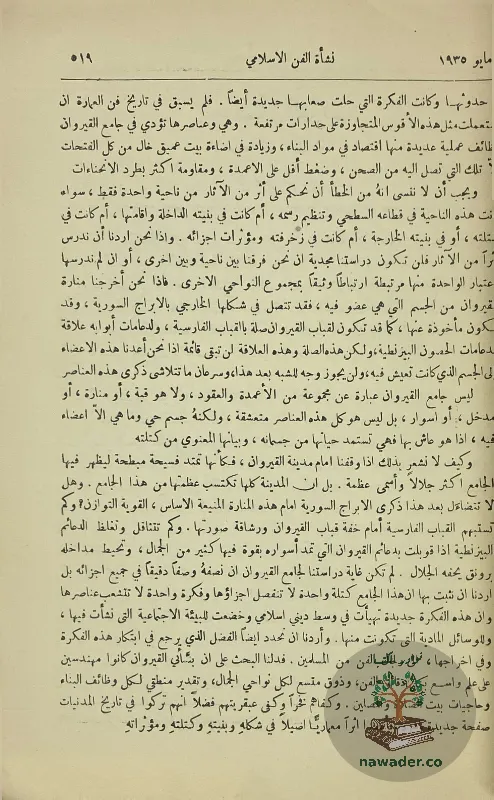 مايو ١٩٣٥ نشأة الفن الاسلامي ٥١٩
حدوثها وكانت الفكرة التي حلت صعابها جديدة أيضاً. فلم يسبق في تاريخ فن العمارة ان
ستعملت مثل هذه الأقوس المتجاوزة على جدارات مرتفعة. وهي وعناصرها تؤدي في جامع القيروان
ظائف عملية عديدة منها اقتصاد في مواد البناء، وزيادة في اضاءة بيت عميق خال من كل الفتحات
تلك التي تصل اليه من الصحن، وضغط أقل على الاعمدة، ومقاومة اكثر بطرد الانحناءات
ويجب أن لا ننسى انهُ من الخطأ أن نحكم على أثر من الآثار من ناحية واحدة فقط، سواء
نت هذه الناحية في قطاعه السطحي وتنظيم رسمه، أم كانت في بنيته الداخلة واقامتها، أم كانت في
كتلته، أو في بنيته الخارجة، أم كانت في زخرفته ومؤثرات اجزائه. واذا نحن اردنا أن ندرس
ثراً من الآثار فلن تكون دراستنا مجدية ان نحن فرقنا بين ناحية وبين اخرى، أو ان لم ندرسها
عتبار الواحدة منها مرتبطة ارتباطاً وثيقاً بمجموع النواحي الاخرى. فاذا نحن أخرجنا منارة
قيروان من الجسم التي هي عضو فيه، فقد تتصل في شكلها الخارجي بالابراج السورية، وقد
تكون مأخوذة عنها، كما قد تكون لقباب القيروان صلة بالقباب الفارسية، ولدعامات أبوابه علاقة
بدعامات الحصون البيزنطية، ولكن هذه الصلة وهذه العلاقة لن تبقى قائمة اذا نحن أعدنا هذه الاعضاء
لى الجسم الذي كانت تعيش فيه، ولن يجوز وجه للشبه بعد هذا، وسرعان ما تتلاشى ذكرى هذه العناصر
ليس جامع القيروان عبارة عن مجموعة من الأعمدة والعقود، ولا هو قبة، أو منارة، أو
مدخل، أو اسوار، بل ليس هو كل هذه العناصر متعشقة، ولكنهُ جسم حي وما هي الاَّ اعضاء
فيه، اذا هو عاش بها فهي تستمد حياتها من جسمانه، وبيانها المعنوي من كتلته
وكيف لا نشعر بذلك اذا وقفنا امام مدينة القيروان، فكأنها تمتد فسيحة مبطحة ليظهر فيها
الجامع اكثر جلالاً وأسمى عظمة. بل ان المدينة كلها تكتسب عظمتها من هذا الجامع. وهل
لا تتضاءل بعد هذا ذكرى الابراج السورية امام هذه المنارة المنيعة الأساس، القوية التوازن؟ وكم
تستبهم القباب الفارسية أمام خفة قباب القيروان ورشاقة صورتها. وكم تتثاقل وتغلظ الدعائم
البيزنطية اذا قوبلت بدعائم القيروان التي تمد أسواره بقوة فيها كثير من الجمال، وتحيط مداخله
برونق يحفه الجلال. لم تكن غاية دراستنا لجامع القيروان ان نصفهُ وصفاً دقيقاً في جميع اجزائه بل
اردنا ان نثبت بها ان هذا الجامع كتلة واحدة لا تنفصل اجزاؤها وفكرة واحدة لا تتشعب عناصرها
وان هذه الفكرة جديدة تهيأت في وسط ديني اسلامي وخضعت للبيئة الاجتماعية التي نشأت فيها،
وللوسائل المادية التي تكونت منها. وأردنا ان نحدد ايضاً الفضل الذي يرجع في ابتكار هذه الفكرة
وفي اخراجها، الفن من المسلمين. فدلنا البحث على ان بنائي القيروان كانوا مهندسين
على علم واسع الفن، وذوق مقسع لكل نواحي الجمال، وتقدير منطقي لكل وظائف البناء
وحاجيات بيت المصلين. وكفاهم فخراً وكفى عبقريتهم فضلاً انهم تركوا في تاريخ المدنيات
صفحة جديدة اثراً معماريًّا أصيلاً في شكله وبنيته وكتلته ومؤثراته
نوادر الكتب
nawader.co